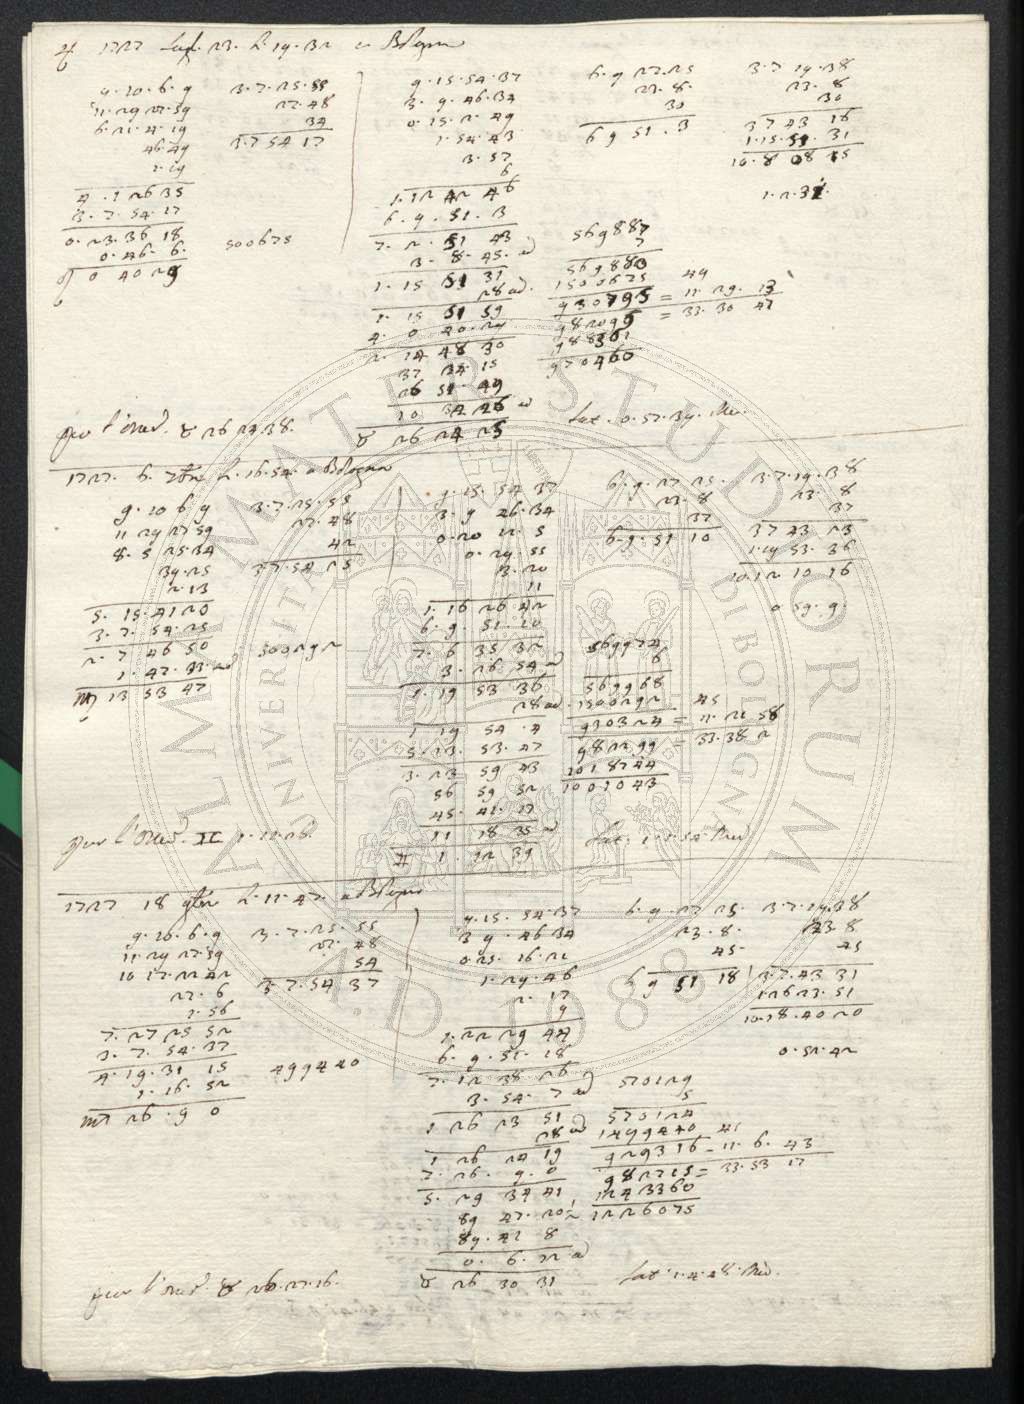 ♃ 1727 Lugl. 23. h. 19. 32 a Bologna
9. 20. 6. 9
11. 29 27. 59
6. 21. 4. 19
46. 49
1. 19
4. 1 26 35
3. 7. 54. 17
0. 23. 36 18
0. 46. 6.
0 40 29
3. 7. 25. 55
22. 48
34
3. 7 54 17
500675
9. 15. 54. 37
3. 9. 46. 34
0. 15. 2. 49
1. 54. 43
3. 57
6
1. 12 42 46
6. 9. 51. 3
7. 2. 51 43
3. 8. 45. ad
1. 15 51 31
28 ad.
1. 15 51 59
4. 0 40. 29
2. 14 48 30
37 34. 15
26 51. 49
10 34 26 ad
♉ 26 24 25
6. 9 27. 25
23. 8.
30
6 9 51. 3
3. 7 19. 38
23. 8
30
3 7 43 16
1. 15. 51. 31
10. 8 08 15
1. 2. 31.
569887
7
569880
1500675 49
930795 = 11. 29. 13
982095 = 33. 30 47
988361
970460
per l'Oned. ♉ 26 24. 38.
Lat. 0. 57. 34. Mer.
1727. 6. 7bre h. 16. 54. a Bologna
9. 20 6 9
11 29 27 59
8. 5 25. 34
39. 25
2. 13
5. 15. 41 20
3. 7. 54. 25
2. 7 46 50
1. 47. 33. ad
♍ 13 53 47
3. 7. 25. 55
22. 48
42
3. 7. 54 25
500292
9. 15. 54 37
3. 9 46. 34
0. 20 11. 5
0. 29. 55
3. 20
11
1. 16 26 42
6. 9. 51. 10
7. 6 35 32
3. 26 54 ad
1. 19 53 36
28 ad.
1 19 54. 4
5. 13. 53. 47
3. 23 59 43
56 59 52
45. 41. 17
11 18 35 ad
♊ 1. 12 39
6. 9. 27 25.
23. 8
37
6. 9. 51 10
3. 7. 19. 38
23. 8
37
3 7 43 23
1. 19 53. 36
10. 12 10 16
0. 59. 9.
569974
6
569968
1500292 45
930324 = 11. 21 58
982299 = 33. 38 2
1018744
1001043
per l'Oned. II 1. 12. 26.
Lat. 1. 1. 54. Mer.
1727 18 9bre h. 11. 47. a Bologna
9. 20. 6. 9
11. 29 27. 59
10 17. 22 42
27. 6
1. 56
7. 27 25 52
3. 7. 54. 37
4. 19. 31 15
1. 16. 52
♍ 26. 9 0
3. 7. 25. 55
22. 48
54
3. 7. 54. 37
499440
9. 15. 54. 37
3 9. 46 34
0. 25. 16. 21
1. 29. 46
2. 17
9
1. 22 29 44
6. 9. 51. 18
7. 12 38 26
3. 54. 7 ad
1 26 23 51
28 ad
1 26 24 19
7. 26. 9. 0
5. 29 34 41
89 47. 20½
89. 41 8
0. 6. 12 ad
♉ 26 30 31
6. 9. 27 25.
23. 8.
45.
6 9 51 18
3. 7. 19. 38
23. 8
45
3. 7. 43 31
1. 26 23. 51
10. 18. 40 20
0. 51. 42
570129
5
570124
1499440 41
929316 - 11. 6. 43
982715 = 33. 53 17
1243360
1226075
per l'Oned. ♉ 26. 27. 16.
Lat. 1. 4. 48. Mer.
ALMA MATER STUDIORUM
UNIVERSITÀ DI BOLOGNA
A.D. 1088